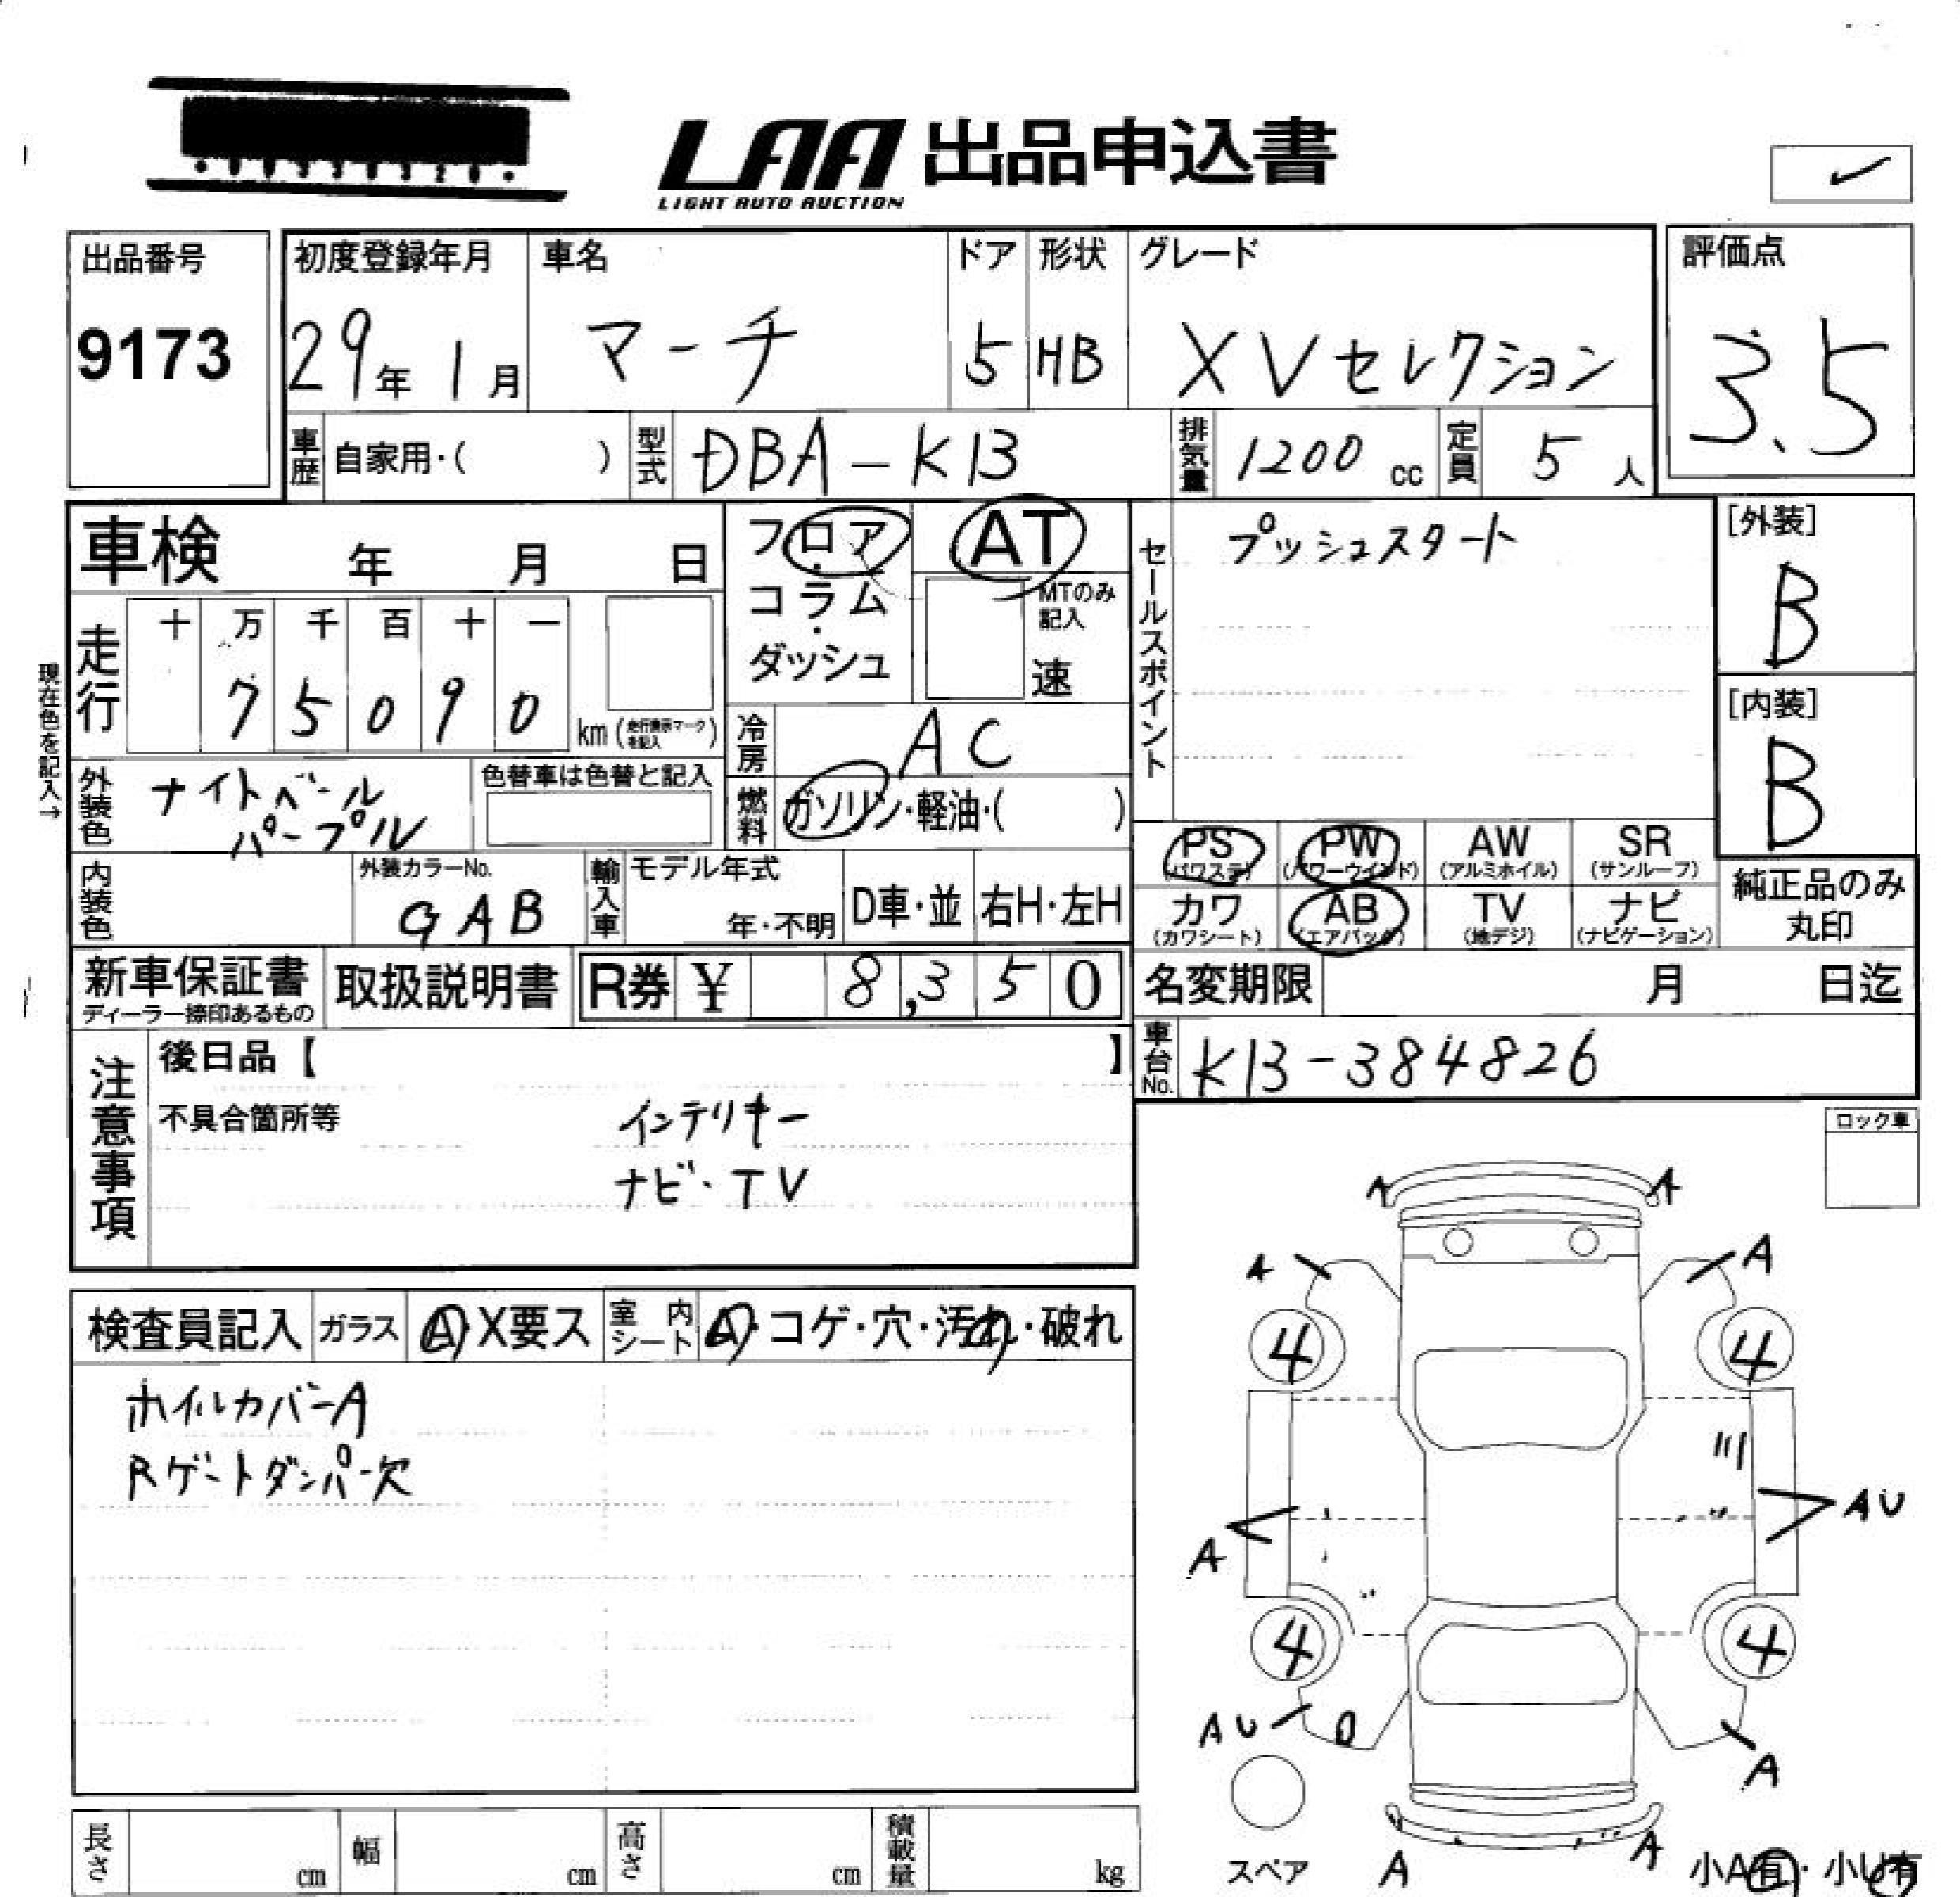 LAA 出品申込書
LIGHT AUTO AUCTION
出品番号
9173
初度登録年月
29年 1月
車名
マーチ
ドア
5
形状
HB
グレード
XVセレクション
評価点
3.5
車歴 自家用・( )
型式 DBA-K13
排気量 1200 cc
定員 5 人
車検 年 月 日
現在色を記入→
走行
十 万 千 百 十 一
7 5 0 9 0
km (走行表示マークを記入)
外装色 ナイトベール
パープル
色替車は色替と記入
内装色
外装カラーNo.
GAB
輸入車
モデル年式
年・不明
D車・並
右H・左H
フロア・
コラム・
ダッシュ
AT
MTのみ記入
速
冷房 AC
燃料 ガソリン・軽油・( )
セールスポイント
プッシュスタート
[外装]
B
[内装]
B
PS (パワステ)
PW (パワーウインド)
AW (アルミホイル)
SR (サンルーフ)
カワ (カワシート)
AB (エアバック)
TV (地デジ)
ナビ (ナビゲーション)
純正品のみ
丸印
新車保証書
ディーラー捺印あるもの
取扱説明書
R券 ¥ 8,350
名変期限 月 日迄
車台No. K13-384826
注意事項
後日品【 】
不具合箇所等
インテリキー
ナビ・TV
ロック車
検査員記入
ガラス A・X要ス
室内シート A・コゲ・穴・汚れ・破れ
ホイルカバーA
Rゲートダンパー欠
A A
A A
4 4
A AU
4 4
AU A
スペア
A A
小A有・小U有
長さ cm
幅 cm
高さ cm
積載量 kg